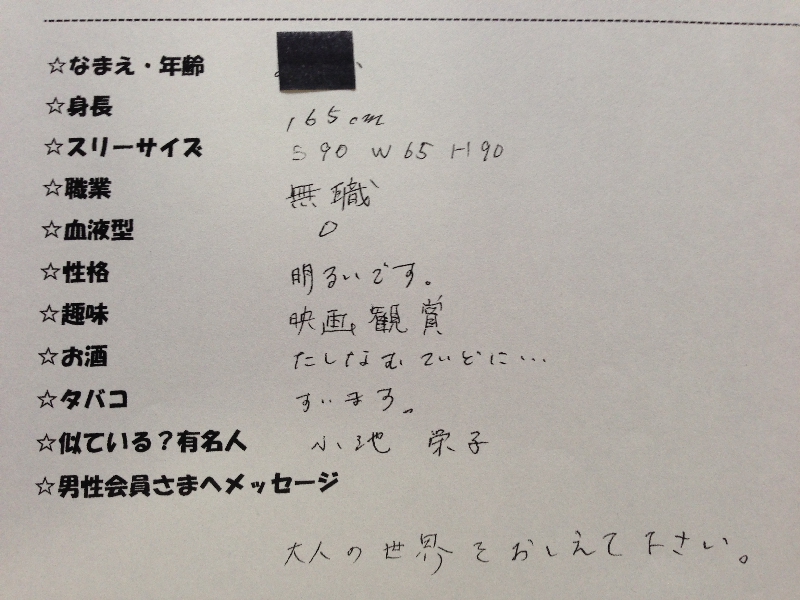 ☆なまえ・年齢
☆身長 165cm
☆スリーサイズ B90 W65 H90
☆職業 無職
☆血液型 O
☆性格 明るいです。
☆趣味 映画観賞
☆お酒 たしなむていどに…
☆タバコ すいます。
☆似ている？有名人 小池 栄子
☆男性会員さまへメッセージ
大人の世界をおしえて下さい。